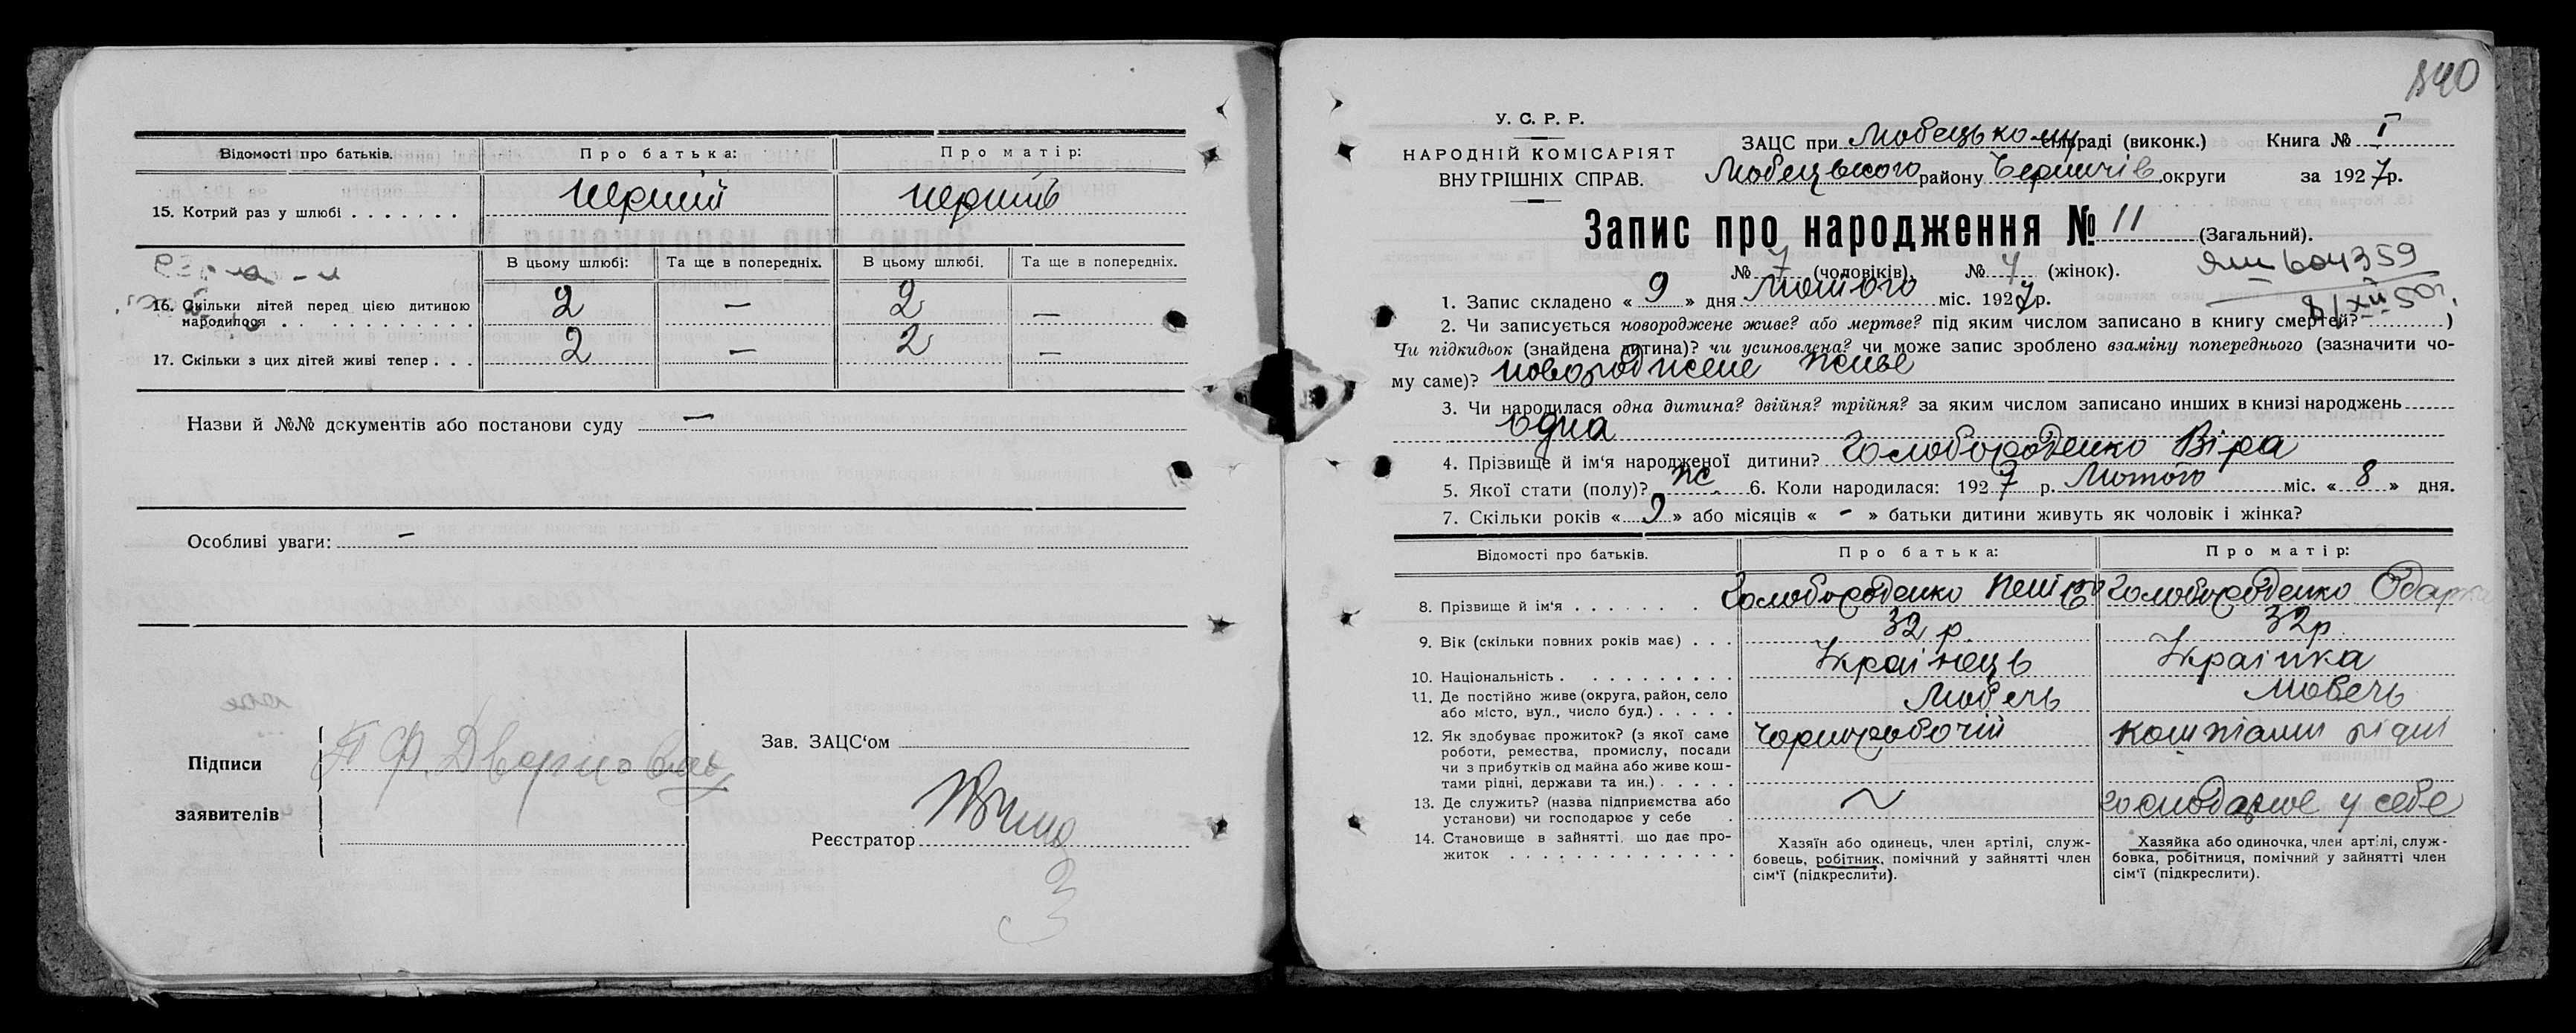 Відомості про батьків. Про батька: Про матір:
15. Котрий раз у шлюбі . . . . . . . перший перший
В цьому шлюбі: Та ще в попередніх. В цьому шлюбі. Та ще в попередніх.
16. Скільки дітей перед цією дитиною народилося . . . 2 — 2 —
17. Скільки з цих дітей живі тепер . . . 2 — 2 —
Назви й №№ документів або постанови суду —
Особливі уваги: —
Підписи
заявителів
Зав. ЗАЦС‘ом
Реєстратор
3
840
У. С. Р. Р.
НАРОДНІЙ КОМІСАРІЯТ
ВНУТРІШНІХ СПРАВ.
ЗАЦС при Любецькому сільраді (виконк.) Книга № I
Любецького району Чернигів округи за 1927 р.
Запис про народження № 11 (Загальний).
№ 7 (чоловіків), № 4 (жінок).
604359
8/XII 50г.
1. Запис складено « 9 » дня Лютого міс. 1927 р.
2. Чи записується новороджене живе? або мертве? під яким числом записано в книгу смертей? )
Чи підкидьок (знайдена дитина)? чи усиновлена? чи може запис зроблено взаміну попереднього (зазначити чо-
му саме)? новороджене живе
3. Чи народилася одна дитина? двійня? трійня? за яким числом записано инших в книзі народжень
одна
4. Прізвище й ім'я народженої дитини? Голобороденко Віра
5. Якої стати (полу)? ж. 6. Коли народилася: 1927 р. Лютого міс. « 8 » дня.
7. Скільки років « 9 » або місяців « - » батьки дитини живуть як чоловік і жінка?
Відомості про батьків. Про батька: Про матір:
8. Прізвище й ім'я . . . . . . . Голобороденко Петро Голобороденко Одарка
9. Вік (скільки повних років має) . . . 32 р. 32 р.
10. Національність . . . . . . . . . . Українець Українка
11. Де постійно живе (округа, район, село
або місто, вул., число буд.) . . . . . Любечь Любечь
12. Як здобуває прожиток? (з якої саме Чорноробочій коштами рідні
роботи, ремества, промислу, посади
чи з прибутків од майна або живе кош-
тами рідні, держави та ин.) . . . . .
13. Де служить? (назва підприємства або ~ господарює у себе
установи) чи господарює у себе .
14. Становище в зайнятті, що дає про-
житок . . . . . . . . . . . . . .
Хазяїн або одинець, член артілі, служ-
бовець, робітник, помічний у зайнятті член
сім'ї (підкреслити).
Хазяйка або одиночка, член артілі, служ-
бовка, робітниця, помічний у зайнятті член
сім'ї (підкреслити).